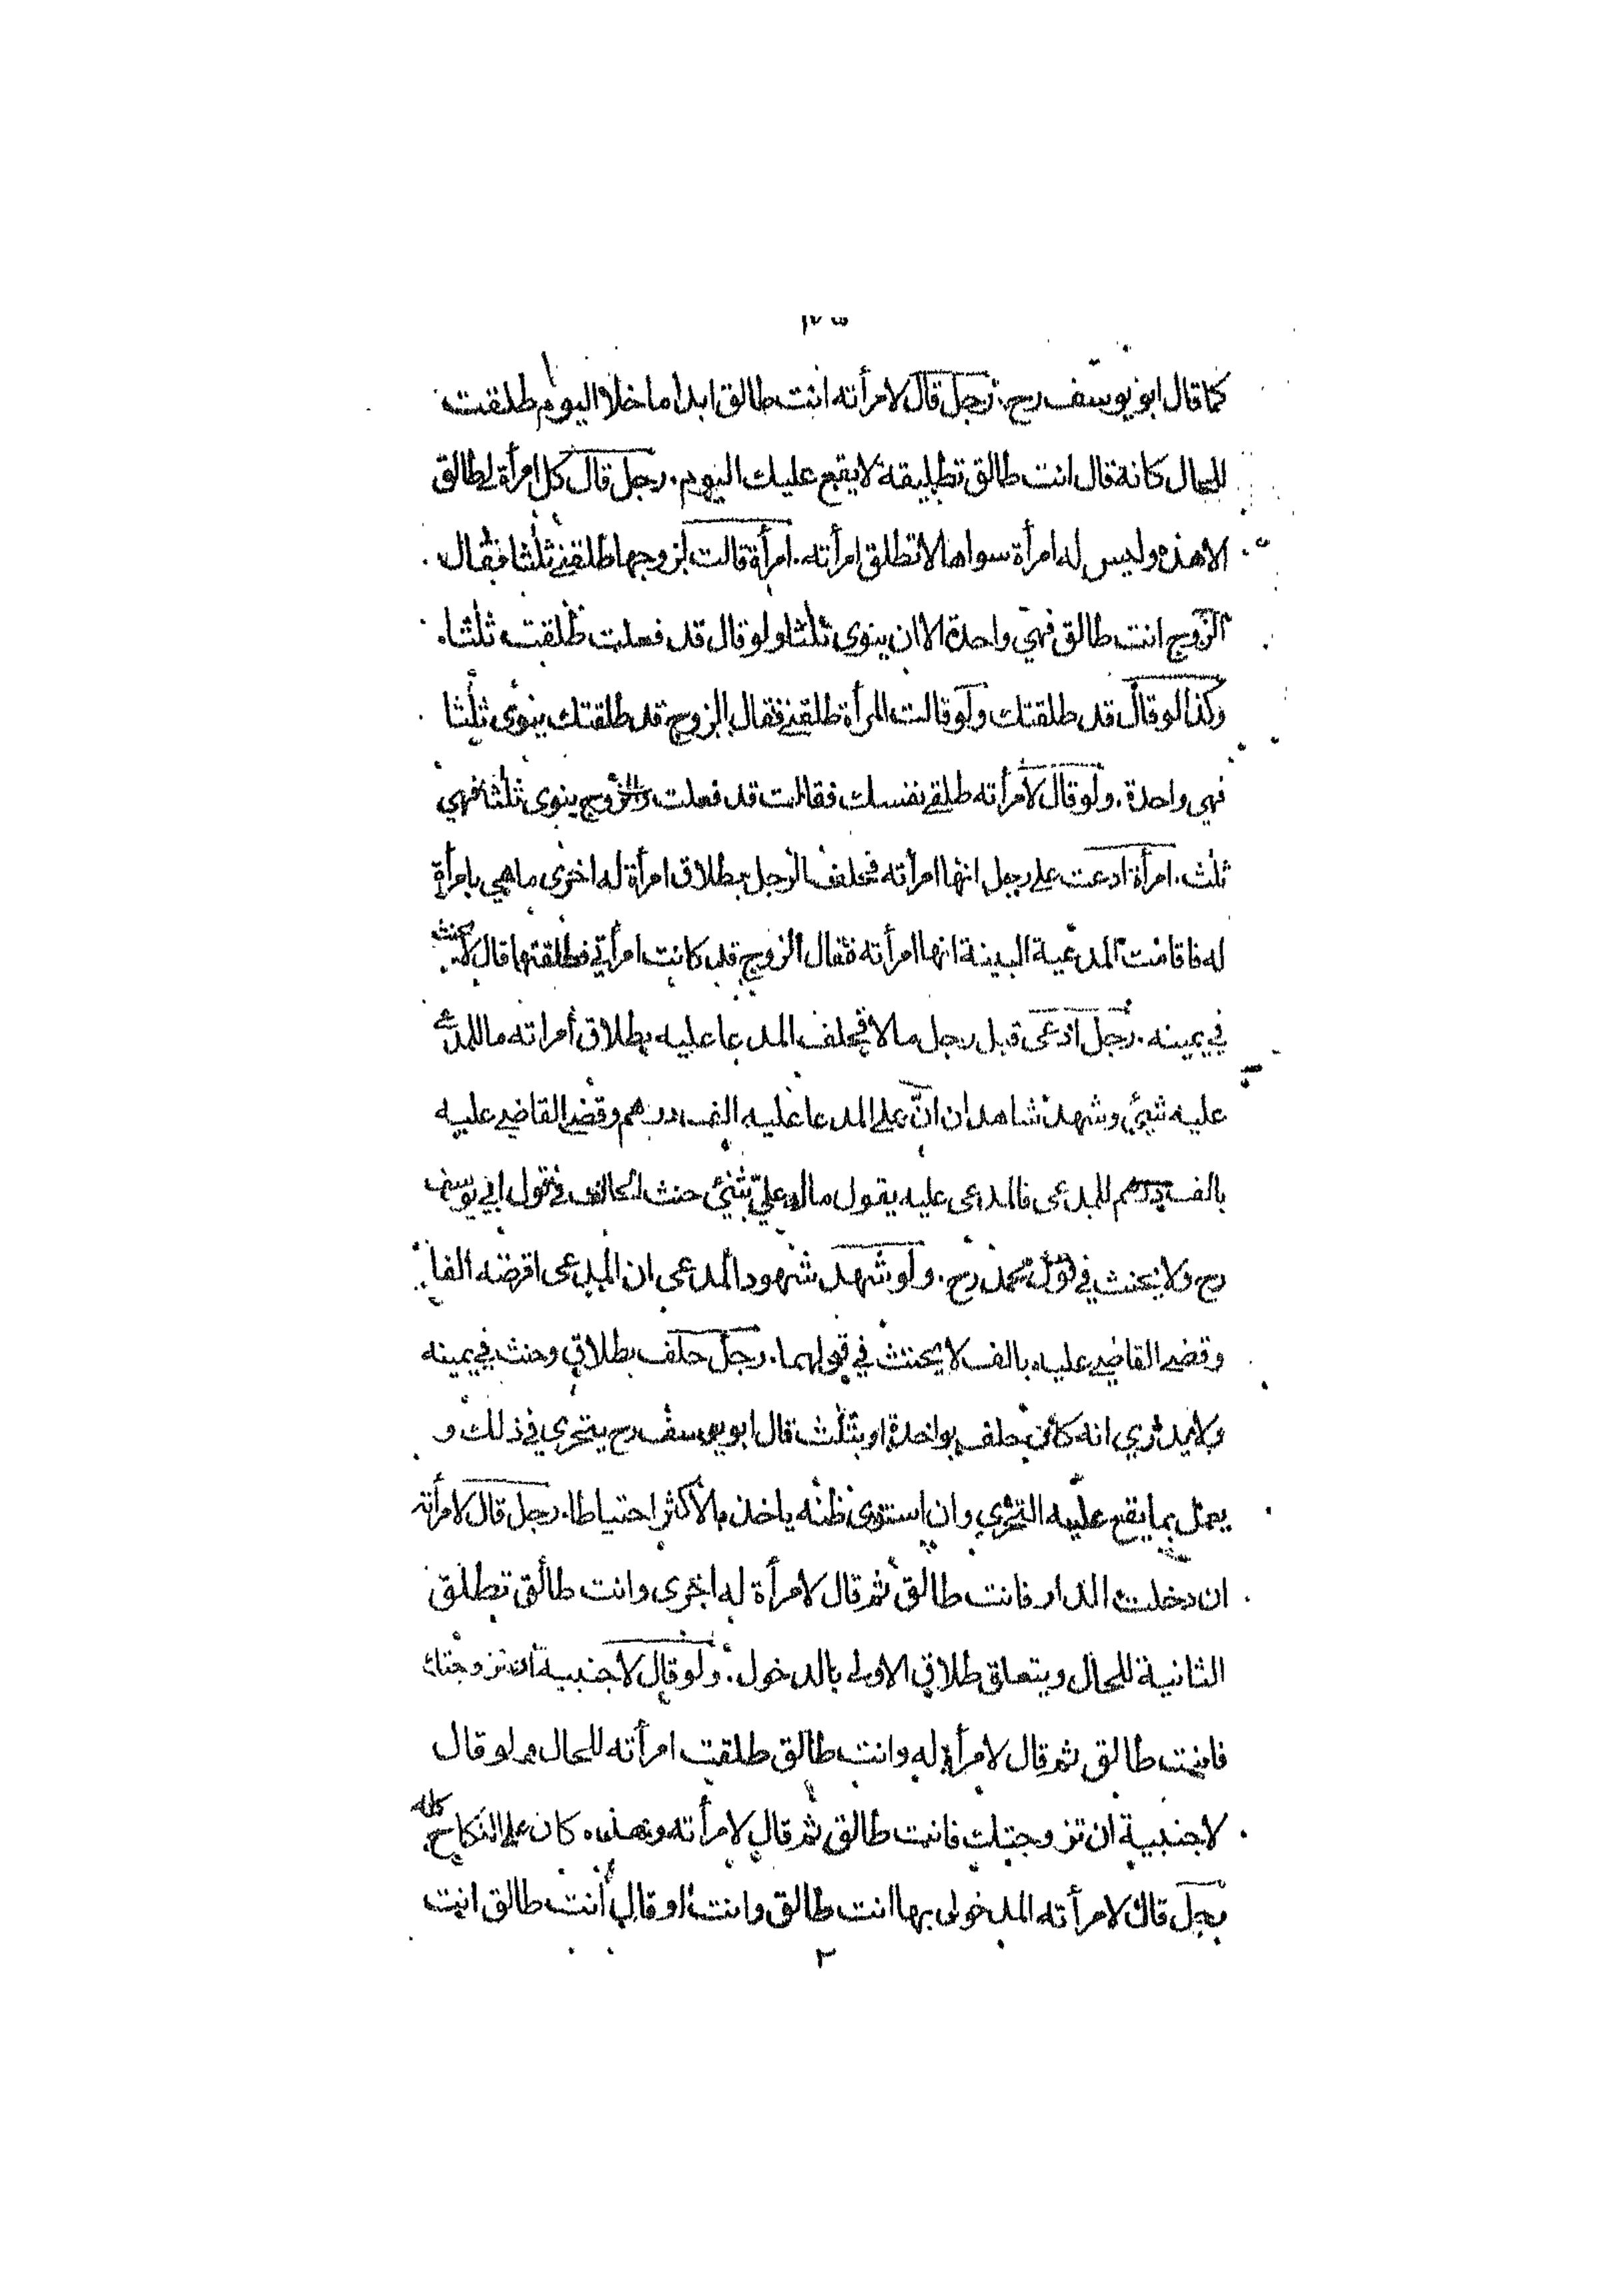 كما قال ابو يوسف رح. رجل قال لامرأته انت طالق ابدا ما خلا اليوم طلقت
للحال كانه قال انت طالق تطليقة لا يقع عليك اليوم. رجل قال كل امرأة لي طالق
الا هذه وليس له امرأة سواها لا تطلق امرأته. امرأة قالت لزوجها طلقني ثلثا فقال
الزوج انت طالق فهي واحدة الا ان ينوى ثلثا ولو قال قد فعلت طلقت ثلثا.
وكذا لو قال قد طلقتك ولو قالت المرأة طلقني فقال الزوج قد طلقتك ينوى ثلثا
فهي واحدة. ولو قال لامرأته طلقي نفسك فقالت قد فعلت والزوج ينوى ثلثا فهي
ثلث. امرأة ادعت على رجل انها امرأته فحلف الرجل بطلاق امرأة له اخرى ما هي بامرأة
له فاقامت المدعية البينة انها امرأته فقال الزوج قد كانت امرأتي فطلقتها قال لا يحنث
في يمينه. رجل ادعى قبل رجل مالا فحلف المدعا عليه بطلاق أمراته ما للمدعي
عليه شيئ وشهد شاهدان انّ على المدعا عليه الف درهم وقضى القاضي عليه
بالف درهم للمدعى فالمدعى عليه يقول ماله عليّ شيئ حنث الحالف في قول ابي يوسف
رح ولا يحنث في قول محمد رح. ولو شهد شهود المدعى ان المدعى اقرضه الفا
وقضى القاضي عليه بالف لا يحنث في قولهما. رجل حلف بطلاق وحنث في يمينه
ولا يدري انه كان حلف بواحدة او بثلث قال ابو يوسف رح يتحرى في ذلك و
يعمل بما يقع عليه التحري وان استوى ظنه ياخذ بالاكثر احتياطا. رجل قال لامرأته
ان دخلت الدار فانت طالق ثم قال لامرأة له اخرى وانت طالق تطلق
الثانية للحال ويتعلق طلاق الاولى بالدخول. ولو قال لاجنبية ان تزوجتك
فانت طالق ثم قال لامرأة له وانت طالق طلقت امرأته للحال ولو قال
لاجنبية ان تزوجتك فانت طالق ثم قال لامرأته وهذه كان على النكاح كله
رجل قال لامرأته المدخولى بها انت طالق وانت او قال انت طالق انت
٢